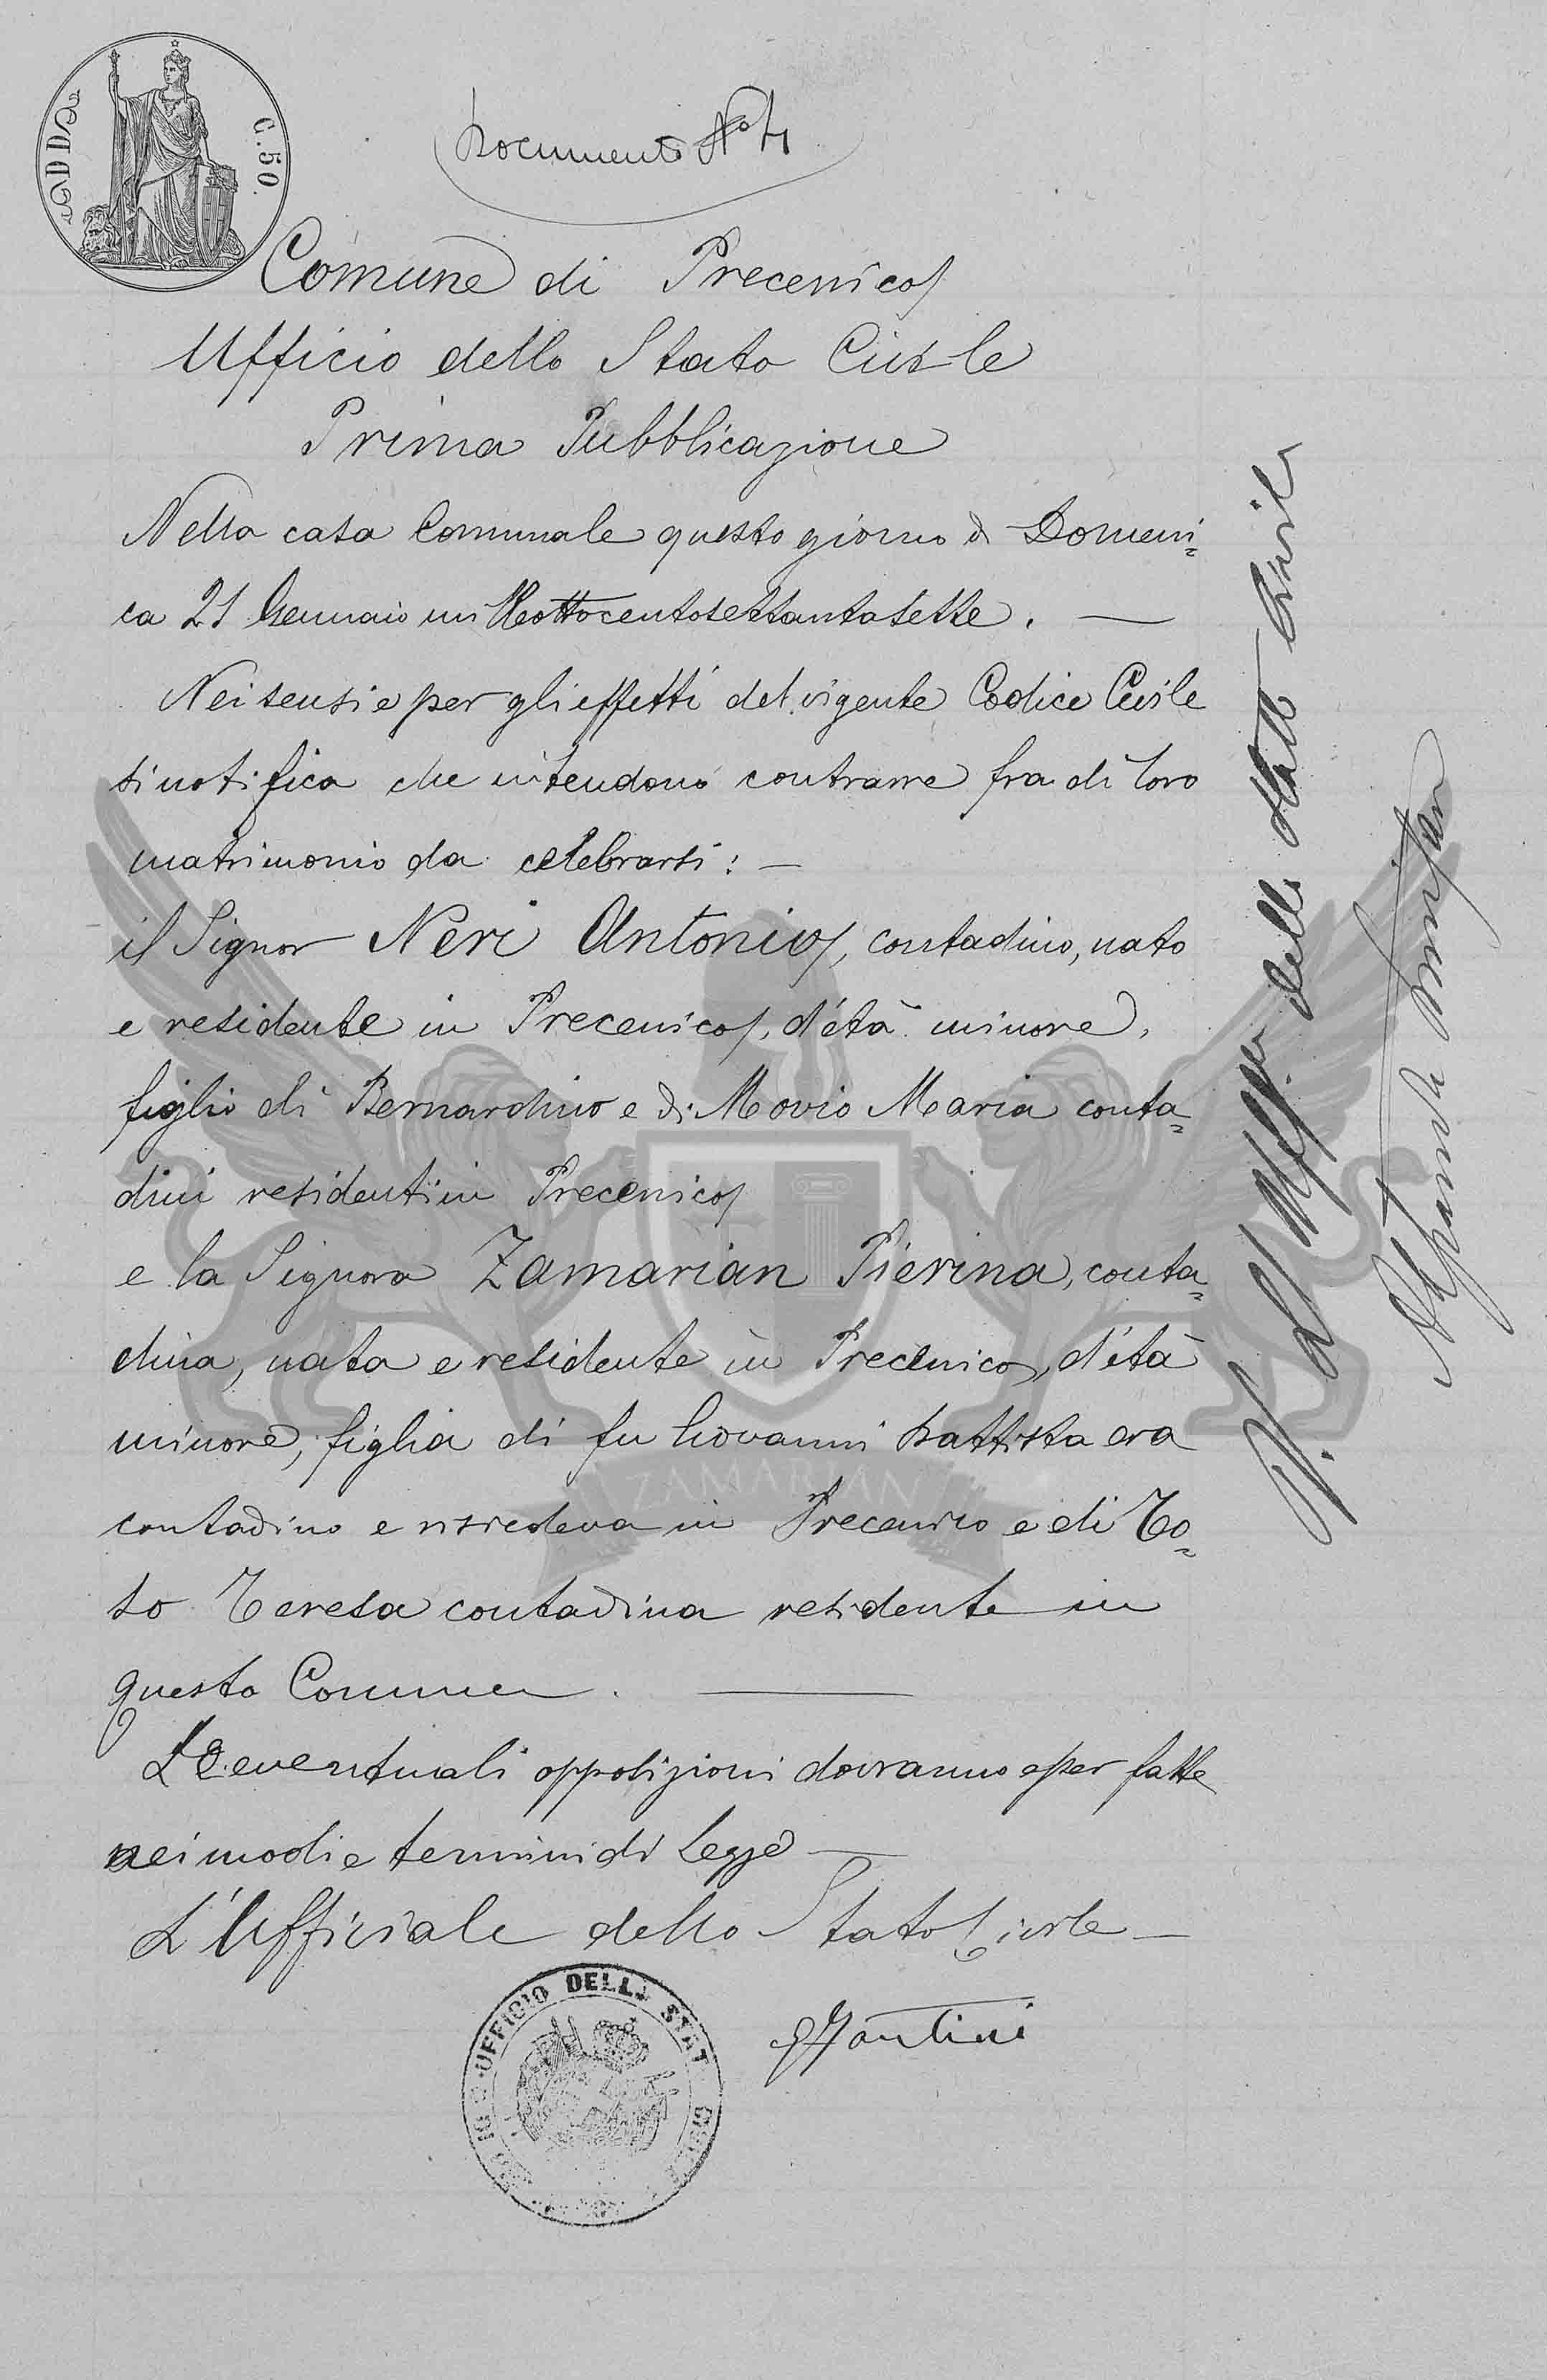 C. 50.
Documento N° 4
Comune di Precenico
Ufficio dello Stato Civile
Prima Pubblicazione
Nella casa Comunale questo giorno di Domeni=
ca 21 Gennaio milleottocentosettantasette. —
Nei sensi e per gli effetti del vigente Codice Civile
si notifica che intendono contrarre fra di loro
matrimonio da celebrarsi: —
il Signor Neri Antonio, contadino, nato
e residente in Precenico, d'età minore,
figlio di Bernardino e di Movio Maria conta=
dini residenti in Precenico
e la Signora Zamarian Pierina, conta=
dina, nata e residente in Precenico, d'età
minore, figlia di fu Giovanni Battista era
contadino e risiedeva in Precenico e di To=
so Teresa contadina residente in
questo Comune. —
Le eventuali opposizioni dovranno esser fatte
nei modi e termini di Legge —
L'Ufficiale dello Stato Civile —
UFFICIO DELLO STAT
V. L'Uff. dello Stato Civile
ZAMARIAN